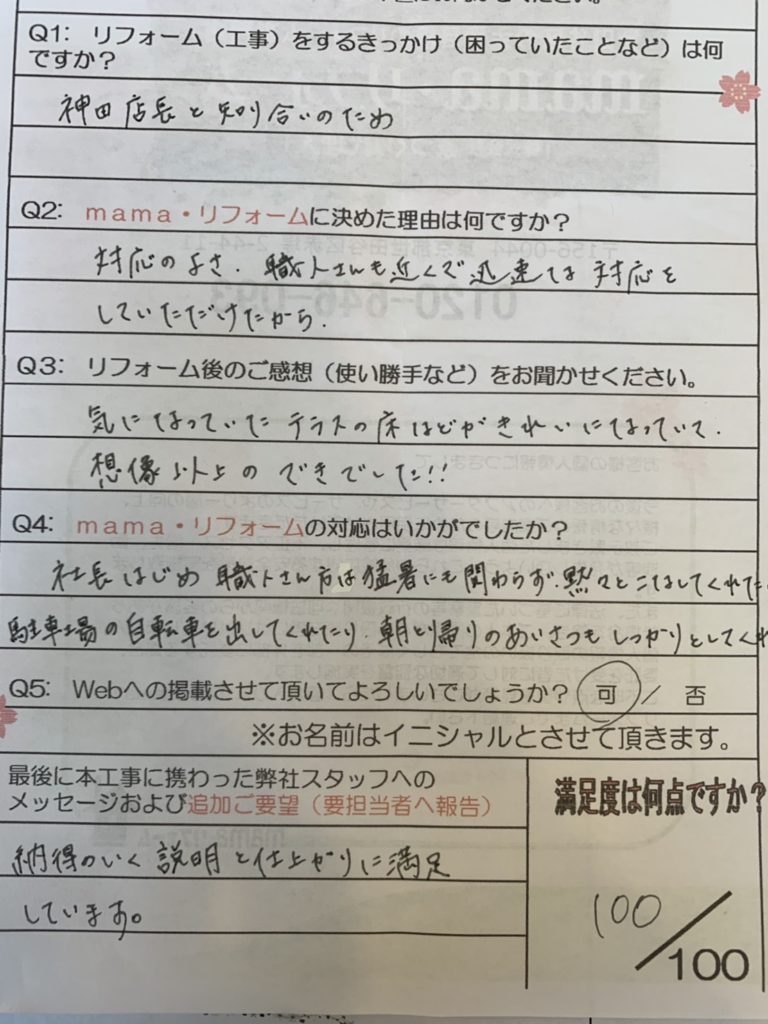 Q1: リフォーム（工事）をするきっかけ（困っていたことなど）は何
ですか？
神田店長と知り合いのため
Q2: ｍａｍａ・リフォームに決めた理由は何ですか？
対応のよさ、職人さんも近くで迅速な対応を
していただけたから。
Q3: リフォーム後のご感想（使い勝手など）をお聞かせください。
気になっていたテラスの床などがきれいになっていて、
想像以上のできでした!!
Q4: ｍａｍａ・リフォームの対応はいかがでしたか？
社長はじめ職人さん方は猛暑にも関わらず、黙々とこなしてくれた
駐車場の自転車を出してくれたり、朝と帰りのあいさつもしっかりとしてくれ
Q5: Webへの掲載させて頂いてよろしいでしょうか？ 可 ／ 否
※お名前はイニシャルとさせて頂きます。
最後に本工事に携わった弊社スタッフへの
メッセージおよび追加ご要望（要担当者へ報告）
納得のいく説明と仕上がりに満足
しています。
満足度は何点ですか？
100／100